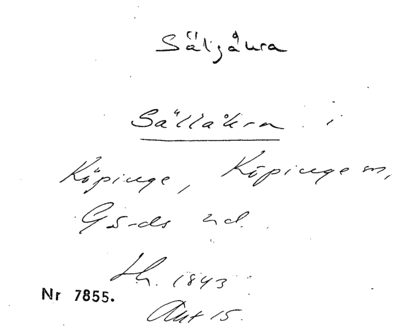 Säljåkra
Sällåkra i
Köpinge, Köpinge sn,
Gärds hd.
Lh. 1843
Nr 7855.
Akt 15.